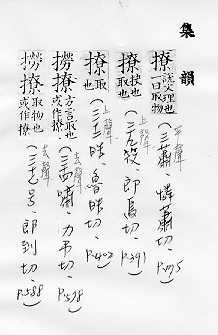 集韻
撩 說文理也一曰取物
平聲
(三蕭 憐蕭切)
P.175
撩 扶也取也
上聲
(三十九筱 郎鳥切)
P.391
撩 取也
上聲
(三十 昧 魯昧切)
P.402
撈撩 方言取也或作撩
去聲
(三十四嘯 力弔切)
P.578
撈撩 取物也或作撩
去聲
(三十七号 郎到切)
P.588